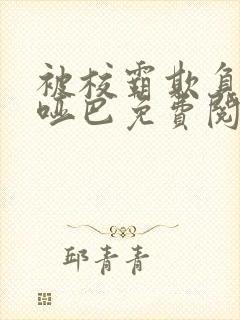 被校霸欺负
哑巴免費閱
邱青青